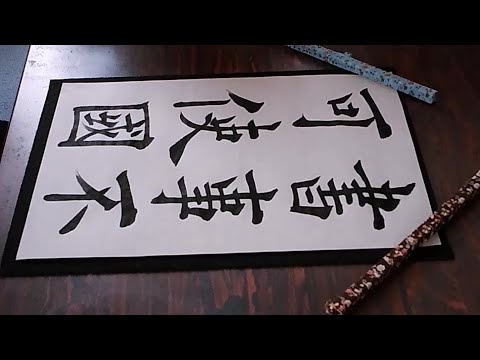 書事不
可使國